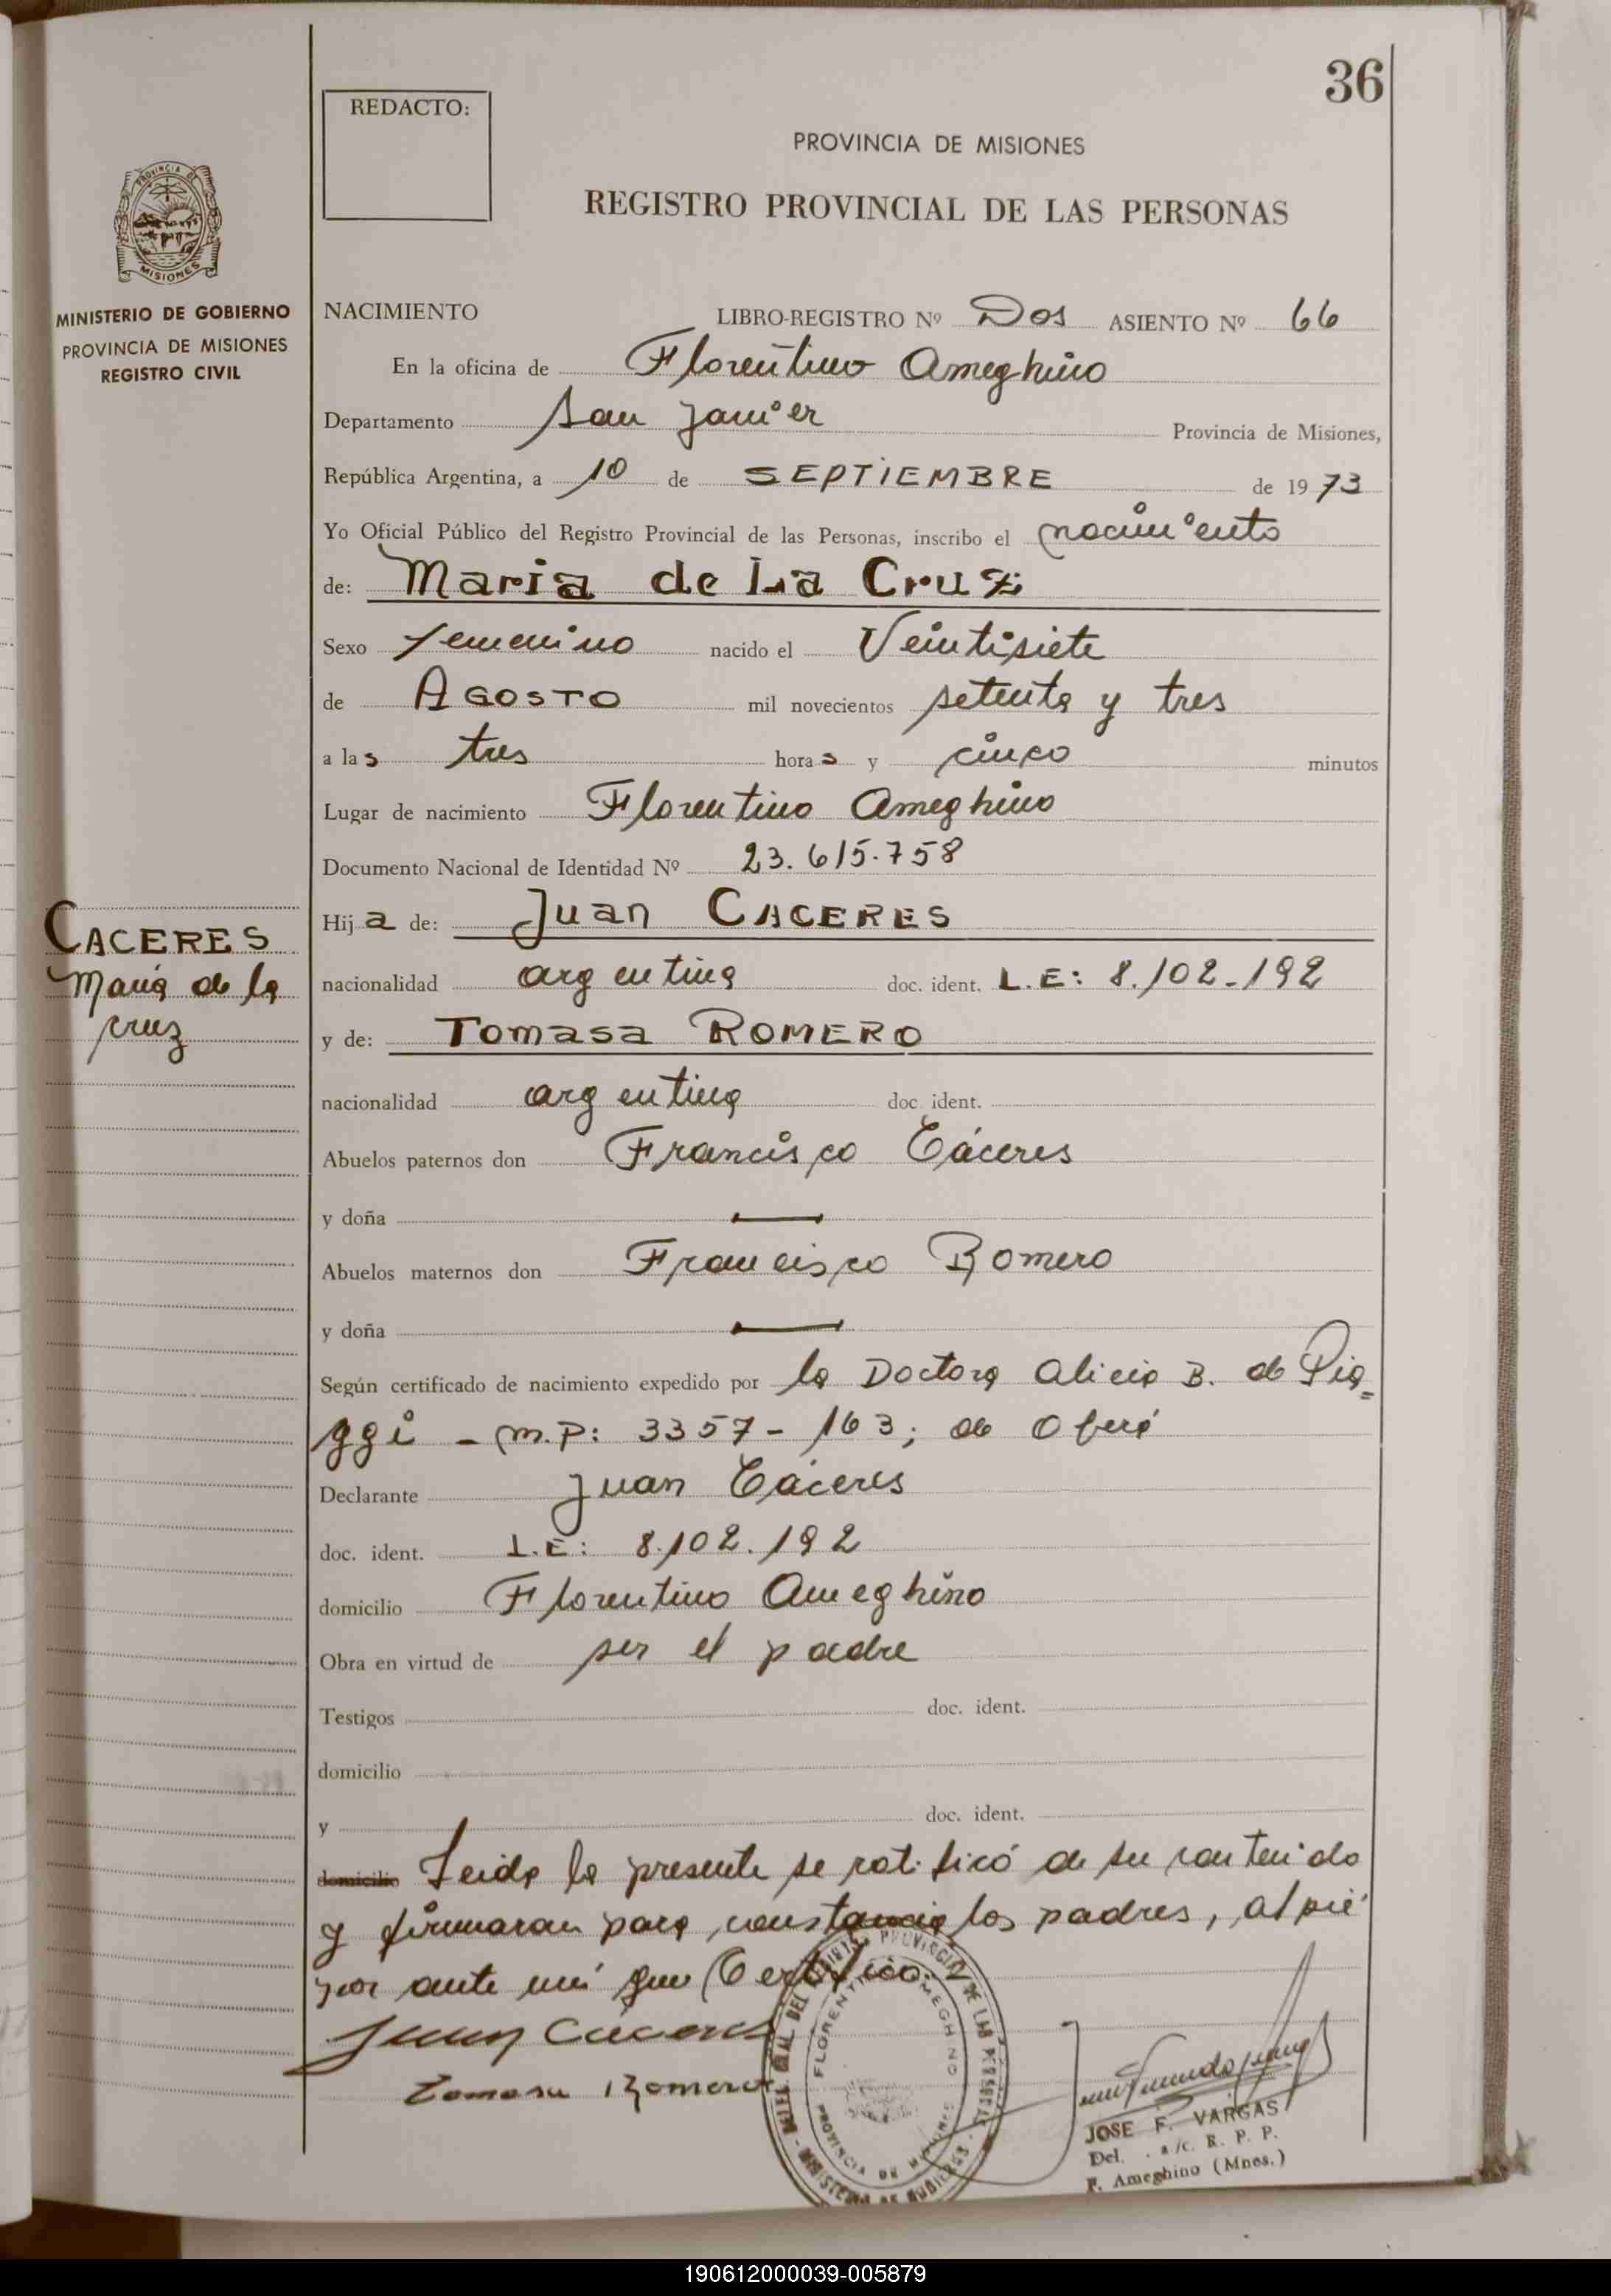 36
REDACTO:
PROVINCIA DE MISIONES
REGISTRO PROVINCIAL DE LAS PERSONAS
PROVINCIA DE
MISIONES
MINISTERIO DE GOBIERNO
PROVINCIA DE MISIONES
REGISTRO CIVIL
NACIMIENTO LIBRO-REGISTRO Nº Dos ASIENTO Nº 66
En la oficina de Florentino Ameghino
Departamento San Javier Provincia de Misiones,
República Argentina, a 10 de SEPTIEMBRE de 1973
Yo Oficial Público del Registro Provincial de las Personas, inscribo el nacimiento
de: Maria de La Cruz
Sexo femenino nacido el Veintisiete
de AGOSTO mil novecientos setenta y tres
a las tres horas y cinco minutos
Lugar de nacimiento Florentino Ameghino
Documento Nacional de Identidad Nº 23.615.758
Hija de: Juan CACERES
CACERES
María de la
cruz
nacionalidad argentina doc. ident. L.E: 8.102-192
y de: Tomasa ROMERO
nacionalidad argentina doc. ident.
Abuelos paternos don Francisco Cáceres
y doña —
Abuelos maternos don Francisco Romero
y doña —
Según certificado de nacimiento expedido por la Doctora Alicia B. de Pia=
ggi - M.P: 3357- 163; de Oberá
Declarante Juan Cáceres
doc. ident. L.E: 8.102.192
domicilio Florentino Ameghino
Obra en virtud de ser el padre
Testigos doc. ident.
domicilio
y doc. ident.
domicilio Leida la presente se ratificó de su contenido
y firmaran para constancia los padres, al pié
por ante mí que Certifico.
Juan Cáceres
Tomasa Romero
FLORENTINO AMEGHINO
PROVINCIA DE MISIONES
JOSE F. VARGAS
Del. a/c. R. P. P.
F. Ameghino (Mnes.)
190612000039-005879